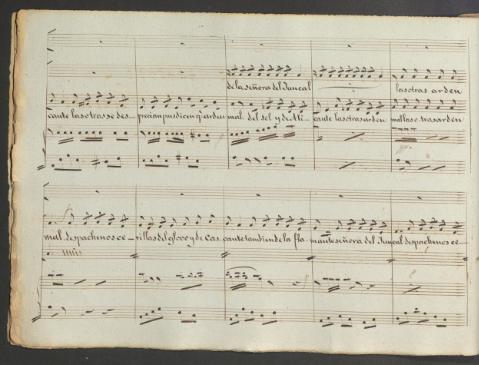 de la señora del Juncal
las otras arden
cante las otras se des- precian pudieren arder mal del sol y de Ali- cante las otras arden mal las otras arden
mal. despachense ce- rillas del globo y de Cas- cante tambien de la fla- mante señora del Juncal despachense ce-